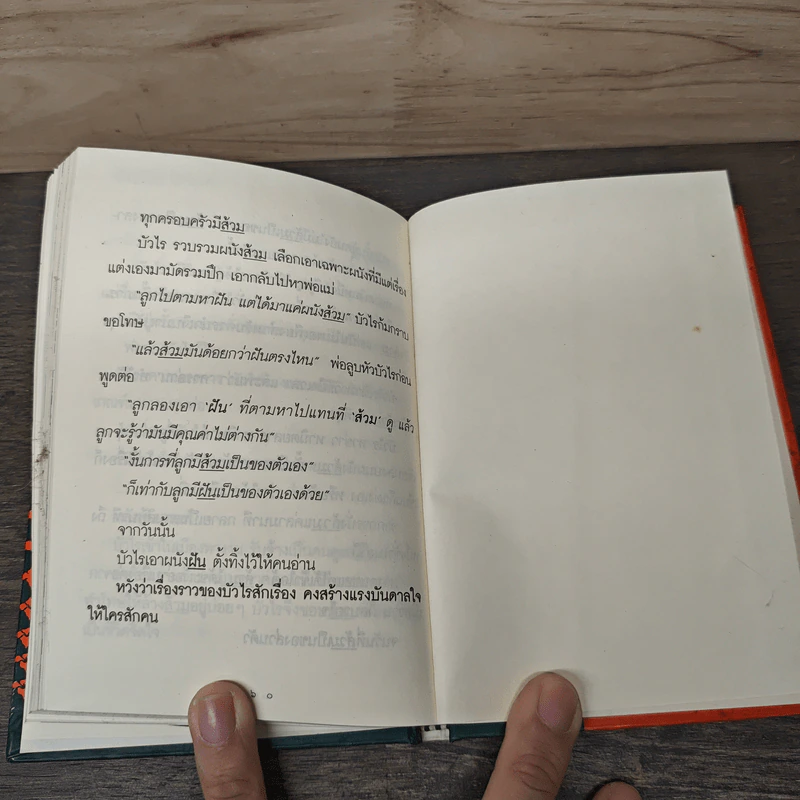 ทุกครอบครัวมีส้วม
บัวไร รวบรวมผนังส้วม เลือกเอาเฉพาะผนังที่มีแต่เรื่อง
แต่งเองมามัดรวมปึก เอากลับไปหาพ่อแม่
“ลูกไปตามหาฝัน แต่ได้มาแค่ผนังส้วม” บัวไรก้มกราบ
ขอโทษ
“แล้วส้วมมันด้อยกว่าฝันตรงไหน” พ่อลูบหัวบัวไรก่อน
พูดต่อ
“ลูกลองเอา ‘ฝัน’ ที่ตามหาไปแทนที่ ‘ส้วม’ ดู แล้ว
ลูกจะรู้ว่ามันมีคุณค่าไม่ต่างกัน”
“งั้นการที่ลูกมีส้วมเป็นของตัวเอง”
“ก็เท่ากับลูกมีฝันเป็นของตัวเองด้วย”
จากวันนั้น
บัวไรเอาผนังฝัน ตั้งทิ้งไว้ให้คนอ่าน
หวังว่าเรื่องราวของบัวไรสักเรื่อง คงสร้างแรงบันดาลใจ
ให้ใครสักคน